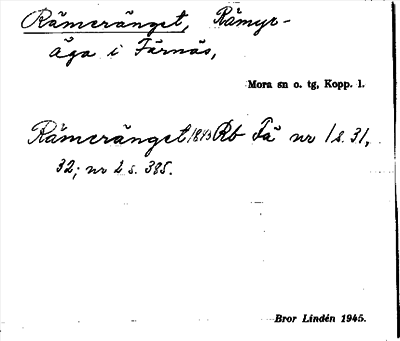 Rämeränget, Rämyr-
äga i Färnäs,
Mora sn o. tg, Kopp. l.
Rämeränget 1843 Rb Fä nr 1 s. 31,
32; nr 2 s. 385.
Bror Lindén 1945.